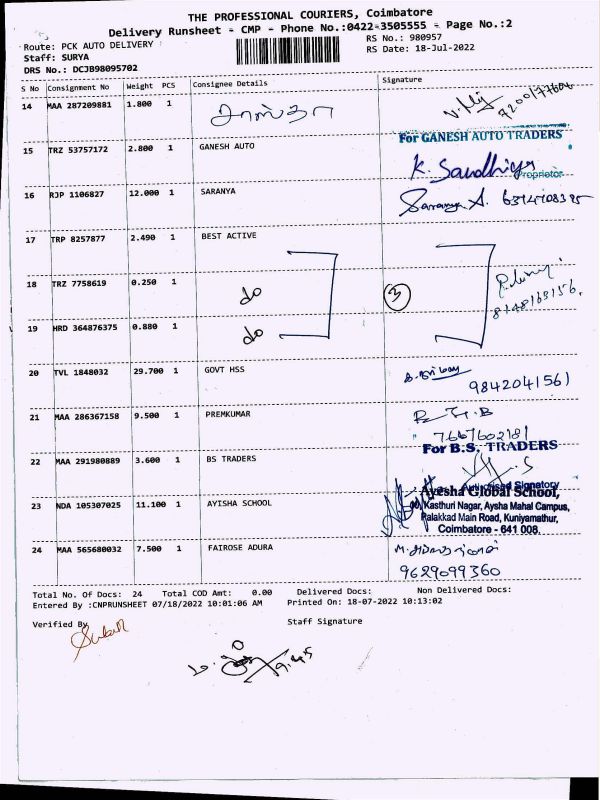 THE PROFESSIONAL COURIERS, Coimbatore
Delivery Runsheet - CMP - Phone No.:0422-3505555 - Page No.:2
Route: PCK AUTO DELIVERY
RS No.: 980957
Staff: SURYA
RS Date: 18-Jul-2022
DRS No.: DCJB98095702
S No Consignment No Weight PCS Consignee Details Signature
14 MAA 287209881 1.800 1
For GANESH AUTO TRADERS
15 TRZ 53757172 2.800 1 GANESH AUTO K. Sandhiya
Proprietor
16 RJP 1106827 12.000 1 SARANYA Saranya A.
17 TRP 8257877 2.490 1 BEST ACTIVE
18 TRZ 7758619 0.250 1 do 3
19 HRD 364876375 0.880 1 do
20 TVL 1848032 29.700 1 GOVT HSS
9842041561
21 MAA 286367158 9.500 1 PREMKUMAR
7667602181
For B.S. TRADERS
22 MAA 291980889 3.600 1 BS TRADERS
Authorised Signatory
Ayesha Global School,
23 NDA 105307025 11.100 1 AYISHA SCHOOL Kasthuri Nagar, Aysha Mahal Campus,
Palakkad Main Road, Kuniyamuthur,
Coimbatore - 641 008.
24 MAA 565680032 7.500 1 FAIROSE ADURA
9629099360
Total No. Of Docs: 24 Total COD Amt: 0.00 Delivered Docs: Non Delivered Docs:
Entered By :CNPRUNSHEET 07/18/2022 10:01:06 AM Printed On: 18-07-2022 10:13:02
Verified By Staff Signature
9.45